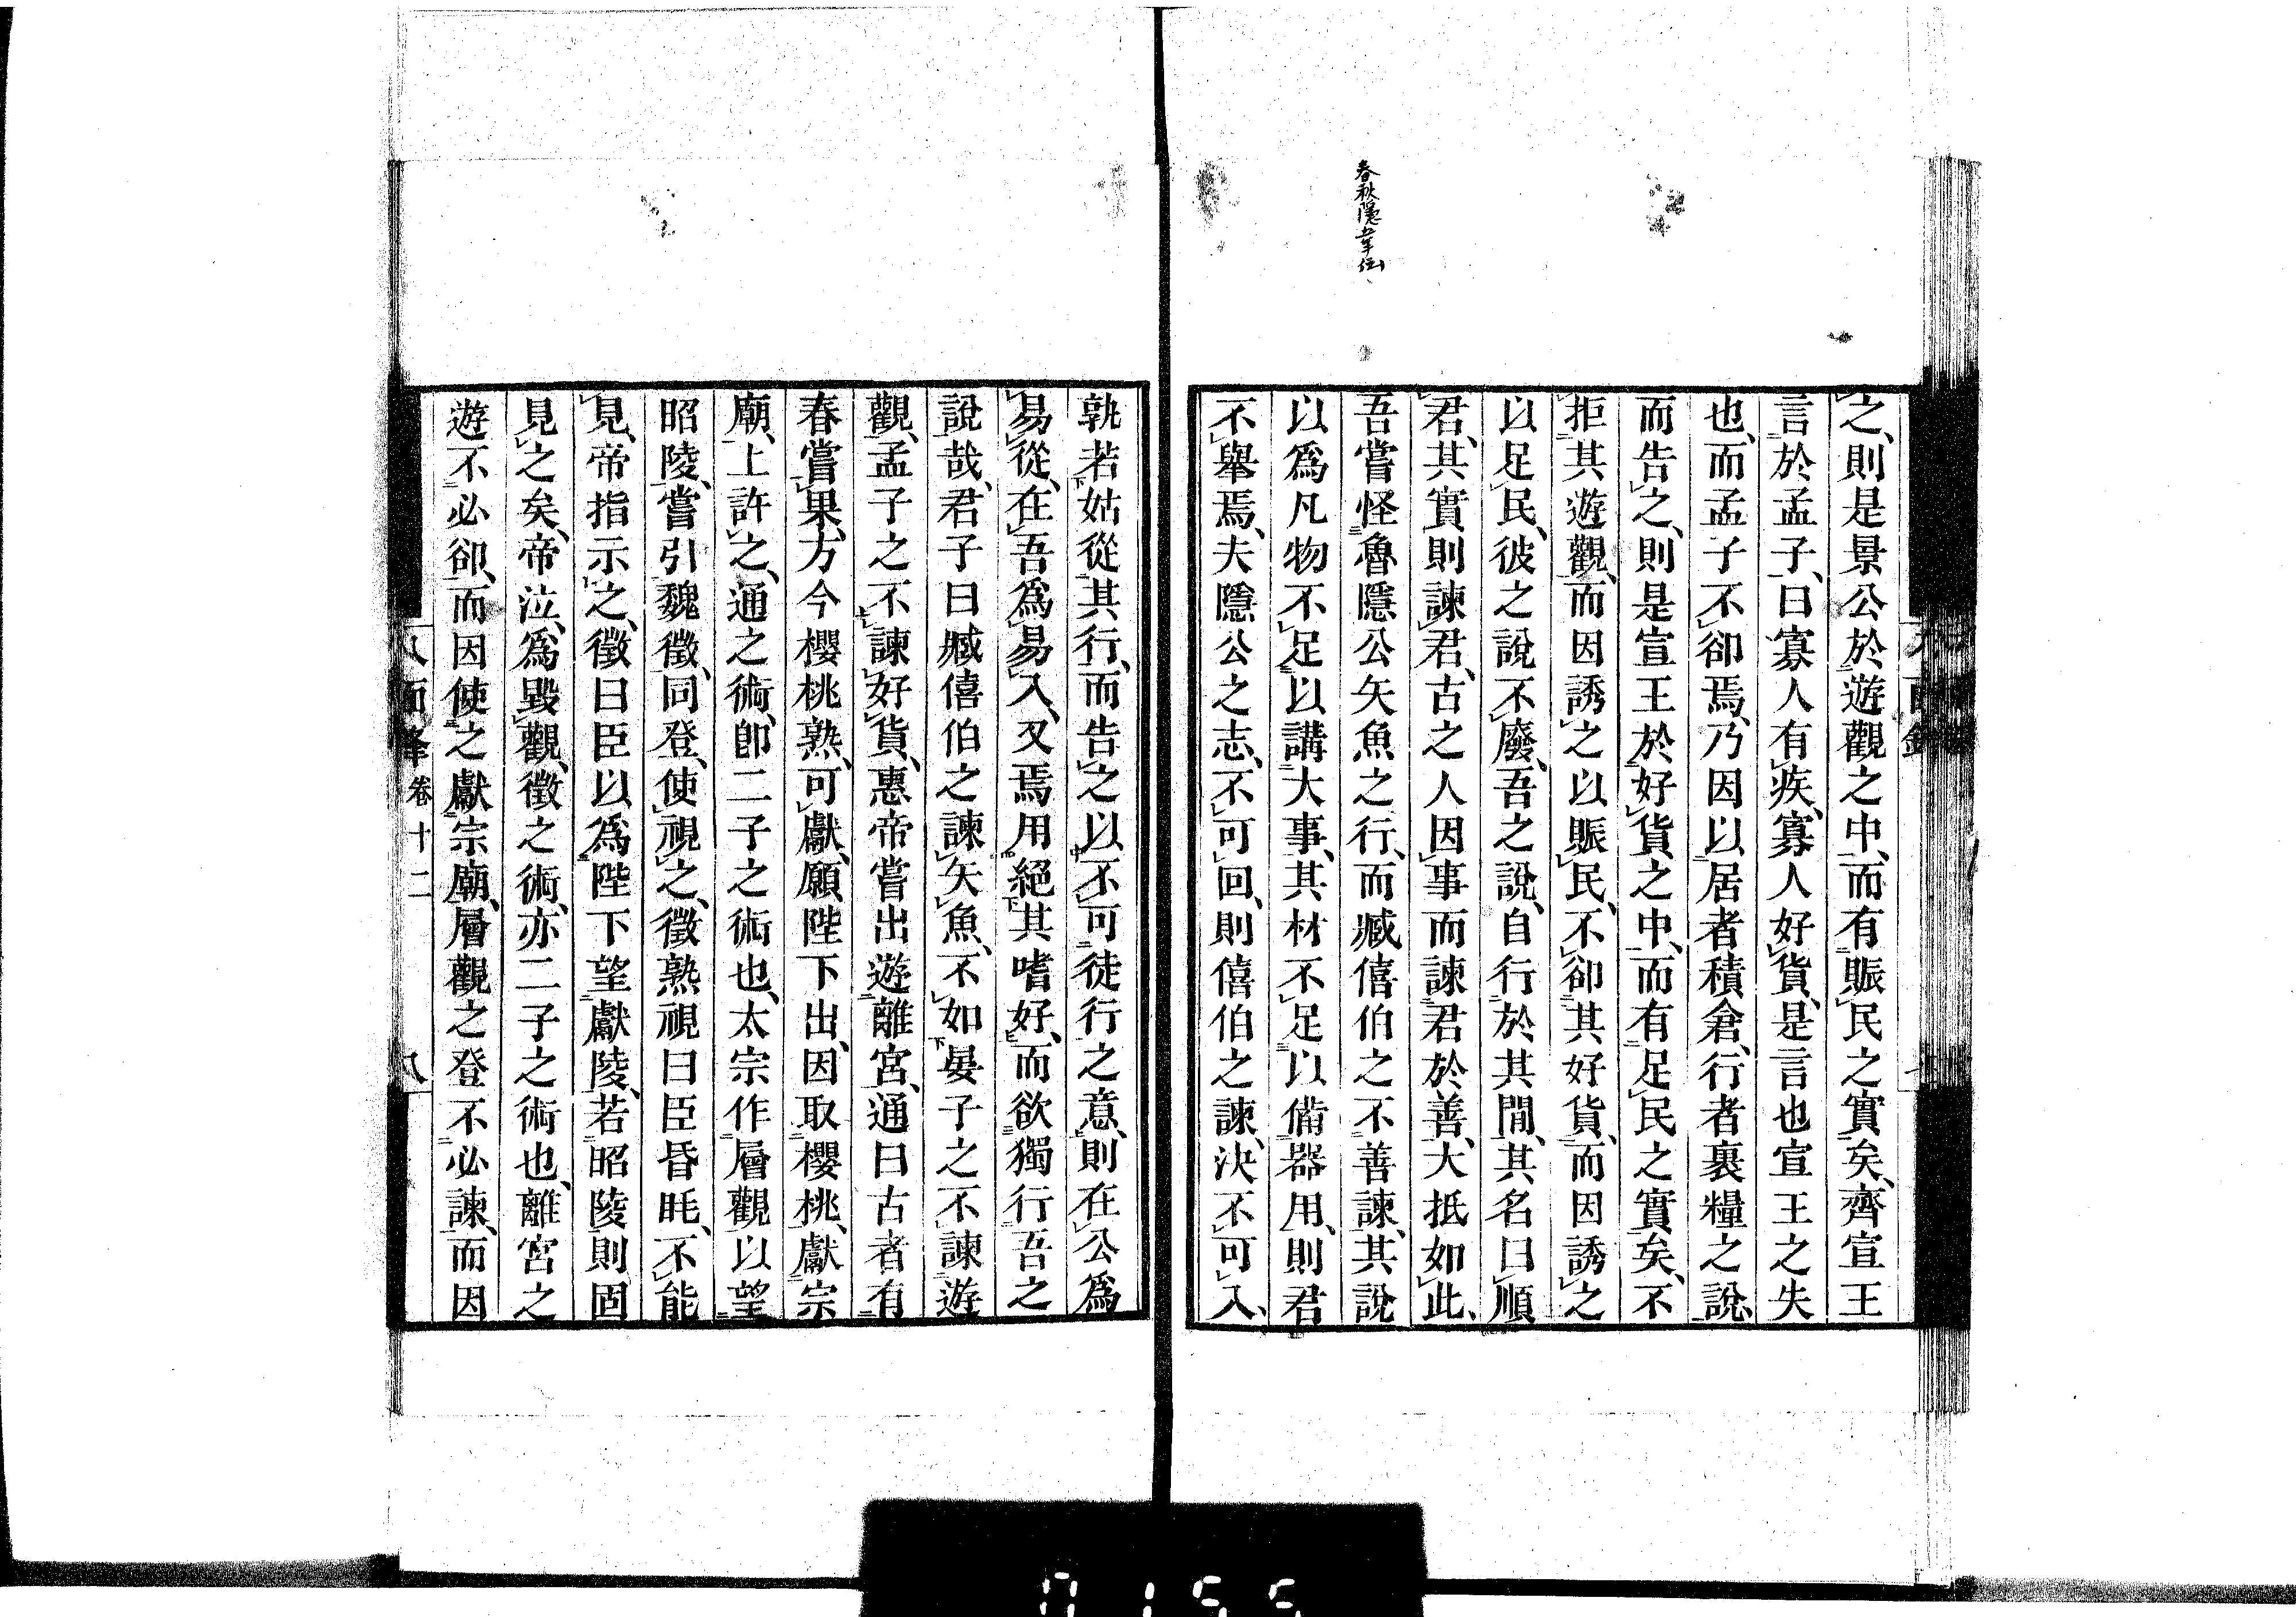 春秋隱五年伝
之、則是景公於遊觀之中、而有賑民之實矣、齊宣王
言於孟子、曰寡人有疾、寡人好貨、是言也宣王之失
也、而孟子不卻焉、乃因以居者積倉、行者裹糧之說、
而告之、則是宣王於好貨之中、而有足民之實矣、不
拒其遊觀、而因誘之以賑民、不卻其好貨、而因誘之
以足民、彼之說不廢、吾之說、自行於其間、其名曰順
君、其實則諫君、古之人因事而諫君於善、大抵如此、
吾嘗怪魯隱公矢魚之行、而臧僖伯之不善諫、其說
以爲凡物不足以講大事、其材不足以備器用、則君
不舉焉、夫隱公之志、不可回、則僖伯之諫、決不可入、
孰若姑從其行、而告之以不可徒行之意、則在公爲
易從、在吾爲易入、又焉用絕其嗜好、而欲獨行吾之
說哉、君子曰臧僖伯之諫矢魚、不如晏子之不諫遊
觀、孟子之不諫好貨、惠帝嘗出遊離宮、通曰古者有
春嘗果、方今櫻桃熟、可獻、願陛下出、因取櫻桃、獻宗
廟、上許之、通之術、卽二子之術也、太宗作層觀以望
昭陵、嘗引魏徵、同登、使視之、徵熟視曰臣昏眊、不能
見、帝指示之、徵曰臣以爲陛下望獻陵、若昭陵則固
見之矣、帝泣、爲毀觀、徵之術、亦二子之術也、離宮之
遊不必卻、而因使之獻宗廟、層觀之登不必諫、而因
八面鋒 卷十二 八
0155